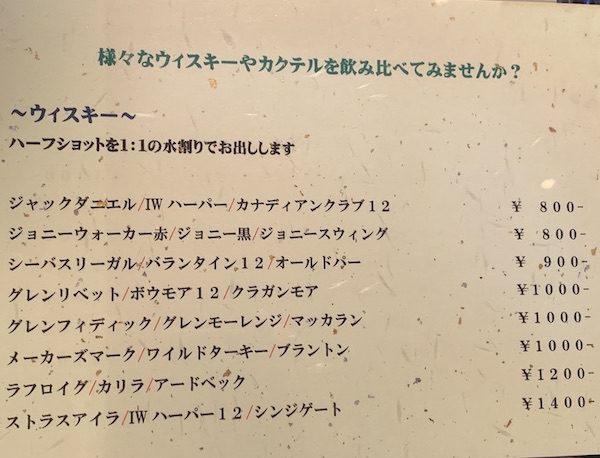 様々なウィスキーやカクテルを飲み比べてみませんか？
～ウィスキー～
ハーフショットを1：1の水割りでお出しします
ジャックダニエル/IWハーパー/カナディアンクラブ１２ ￥ ８００-
ジョニーウォーカー赤/ジョニー黒/ジョニースウィング ￥ ８００-
シーバスリーガル/バランタイン１２/オールドパー ￥ ９００-
グレンリベット/ボウモア１２/クラガンモア ￥１０００-
グレンフィディック/グレンモーレンジ/マッカラン ￥１０００-
メーカーズマーク/ワイルドターキー/ブラントン ￥１０００-
ラフロイグ/カリラ/アードベック ￥１２００-
ストラスアイラ/IWハーパー１２/シンジゲート ￥１４００-